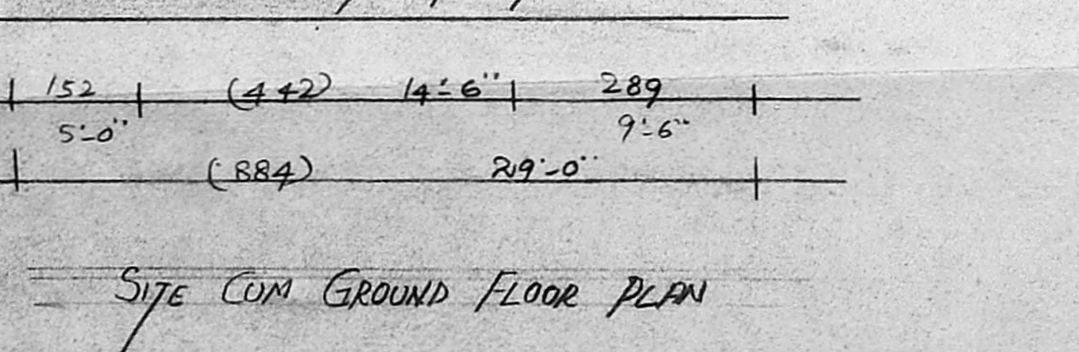 152 (442) 14'-6" 289
5'-0" 9'-6"
(884) 29'-0"
SITE CUM GROUND FLOOR PLAN